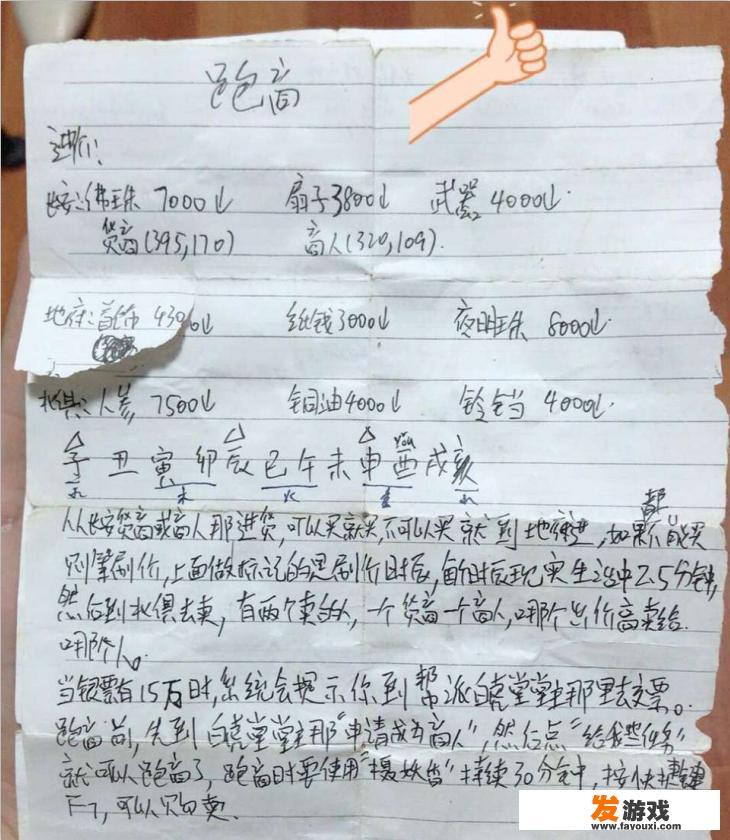 跑商
进价:
长安:佛珠 7000↓ 扇子3800↓ 武器4000↓.
货商(395,170) 商人(320,109).
地府:首饰 4300↓ 纸钱3000↓ 夜明珠 8000↓.
北俱:人参 7500↓ 铜油4000↓ 铃铛 4000↓.
子 丑 寅 卯 辰 巳 午 未 申 酉 戌 亥
水 木 火 金 水
从长安货商或商人那进货,可以买就买,不可以买就到地府进,如果都不能买
则等刷价,上面做标记的是刷价时辰,每时辰现实生活中2.5分钟,
然后到北俱去卖,有两个卖的人,一个货商一个商人,哪个出价高卖给
哪个人。
当银票有15万时,系统会提示你到帮派白虎堂堂主那里去交票。
跑商前,先到白虎堂堂主那"申请成为商人",然后点"给我些任务"
就可以跑商了,跑商时要使用"摄妖香"持续30分钟,按快捷键
F7,可以购卖.
发游戏
www.fayouxi.com